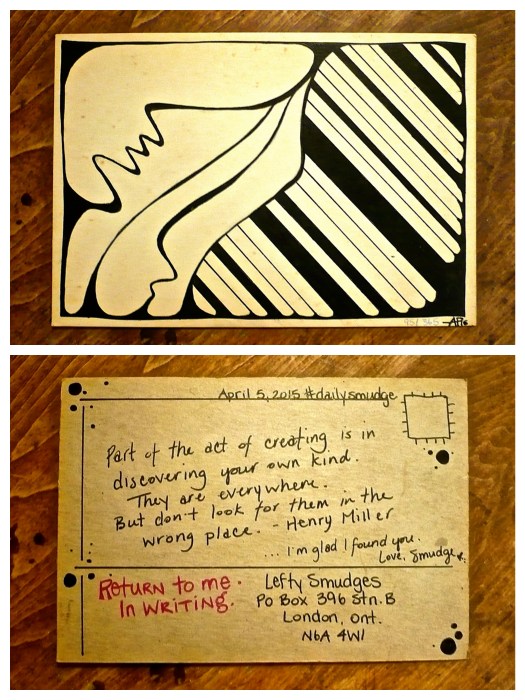 95/365
April 5, 2015 #dailysmudge
Part of the act of creating is in
discovering your own kind.
They are everywhere.
But don't look for them in the
wrong place. - Henry Miller
... I'm glad I found you.
Love, Smudge
Return to me.
In Writing.
Lefty Smudges
Po Box 396 Stn. B
London, Ont.
N6A 4W1